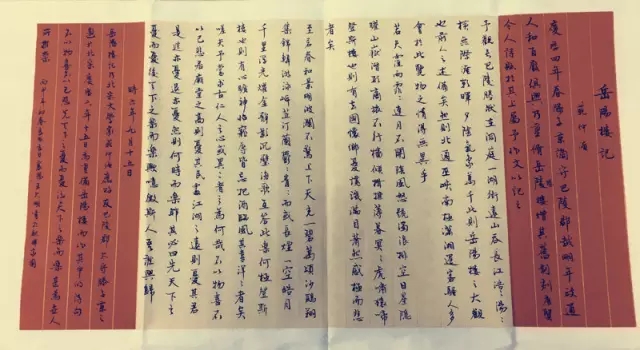 岳陽樓記
范仲淹
慶曆四年春滕子京謫守巴陵郡越明年政通
人和百廢俱興乃重修岳陽樓增其舊制刻唐賢
今人詩賦於其上屬予作文以記之
予觀夫巴陵勝狀在洞庭一湖銜遠山吞長江浩浩湯湯
橫無際涯朝暉夕陰氣象萬千此則岳陽樓之大觀
也前人之述備矣然則北通巫峽南極瀟湘遷客騷人多
會於此覽物之情得無異乎
若夫霪雨霏霏連月不開陰風怒號濁浪排空日星隱
曜山岳潛形商旅不行檣傾楫摧薄暮冥冥虎嘯猿啼
登斯樓也則有去國懷鄉憂讒畏譏滿目蕭然感極而悲
者矣
至若春和景明波瀾不驚上下天光一碧萬頃沙鷗翔
集錦鱗游泳岸芷汀蘭鬱鬱青青而或長煙一空皓月
千里浮光耀金靜影沉璧漁歌互答此樂何極登斯
樓也則有心曠神怡寵辱皆忘把酒臨風其喜洋洋者矣
嗟夫予嘗求古仁人之心或異二者之為何哉不以物喜不
以己悲居廟堂之高則憂其民處江湖之遠則憂其君
是進亦憂退亦憂然則何時而樂耶其必曰先天下之
憂而憂後天下之樂而樂歟噫微斯人吾誰與歸
時六年九月十五日
岳陽樓記乃北宋文學家范仲淹應好友巴陵郡太守滕子京之
邀於北宋慶曆六年九月十五日為重修岳陽樓而作其中的詩句
不以物喜不以己悲先天下之憂而憂後天下之樂而樂是古人
所推崇 丙申年初春